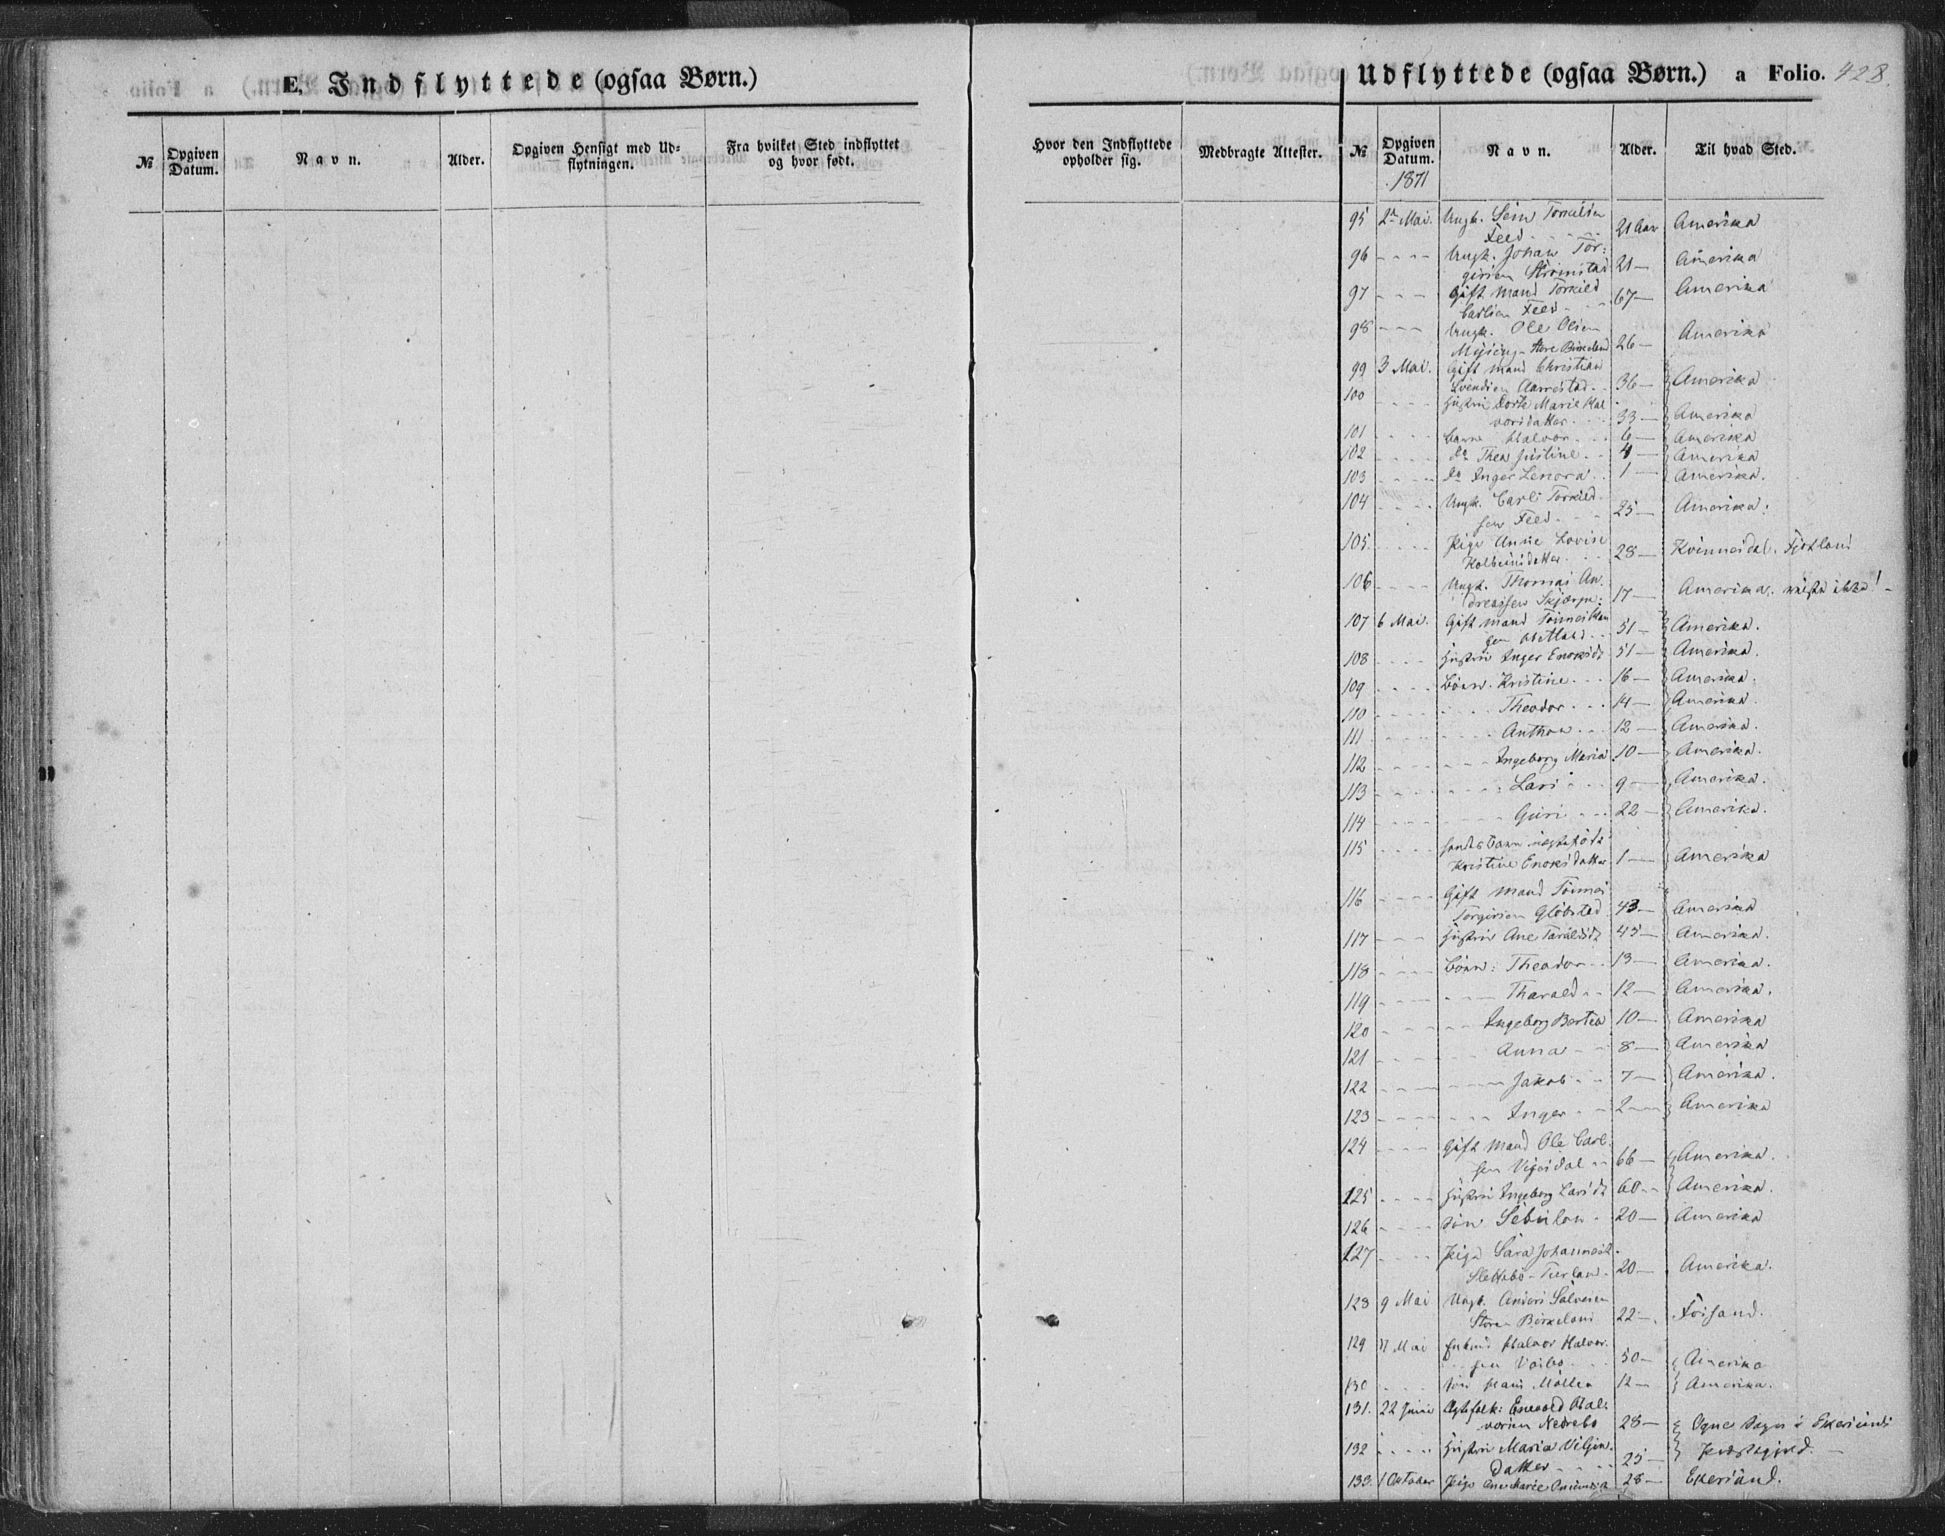 E. Indflyttede (ogsaa Børn.)
№
Opgiven Datum.
Navn.
Alder.
Opgiven Hensigt med Ud-
flytningen.
Fra hvilket Sted indflyttet
og hvor født.
Hvor den Indflyttede
opholder sig.
Medbragte Attester.
Udflyttede (ogsaa Børn.) a Folio. 428.
№
Opgiven Datum.
Navn.
Alder.
Til hvad Sted.
1871
95 2 Mai. Ungk. Torkelsen
Feed 21 Aar Amerika
96 Ungk. Johan Tor-
gersen 21 Amerika
97 Gift Mand Torkild
Carlsen Feed 67 Amerika
98 Ungk. Ole Olsen
Store Birkeland 26 Amerika
99 3 Mai. Gift Mand Christian
Svendsen Aarrestad 36 Amerika
100 Hustru Dorte Marie Hal-
vorsdatter 33 Amerika
101 Børn Halvor 6 Amerika
102 do Thea Justine 4 Amerika
103 do Inger Lenora 1 Amerika.
104 Ungk. Carl Torkild-
sen Feed 25 Amerika.
105 Pige Anne Lovise
Kolbeinsdatter 28 Kvinnesdal. Fjotland
106 Ungk. Thomas An-
dreassen 17 Amerika. reiste ikke!
107 6 Mai. Gift Mand Tønnes Han-
sen 51 Amerika.
108 Hustru Inger Enoksdt 51 Amerika.
109 Børn. Kristine 16 Amerika.
110 Theodor 14 Amerika.
111 Anthon 12 Amerika.
112 Ingeborg Maria 10 Amerika.
113 Lars 9 Amerika.
114 Guri 22 Amerika.
115
Kristine Enoksdatter 1 Amerika
116 Gift Mand Tønnes
Torgersen 43 Amerika
117 Hustru Ane Taraldsdt 45 Amerika.
118 Børn: Theodor 13 Amerika.
119 Tharald 12 Amerika.
120 Ingeborg Bertea 10 Amerika
121 Anna 8 Amerika
122 Jakob 7 Amerika.
123 Inger 2 Amerika
124 Gift Mand Ole Carl-
sen 66 Amerika.
125 Hustru Ingeborg Larsdt 60 Amerika.
126 Søn Sebulon 20 Amerika
127 Pige Sara Johannesdt
Slettebø 20 Amerika.
128 9 Mai Ungk. Anders Salvesen
Store Birkeland 22
129 11 Mai Enkmd Halvor Halvor-
sen 50 Amerika
130 Søn Hans 12 Amerika.
131. 22 Juni Ægtefolk: Enevold Hal-
vorsen Nedrebø 28 Ogne Sogn i Ekersunds
132 Hustru Maria
Datter 25 Præstegjeld.
133. 1 Oktober Pige Ane Marie 28 Ekersund.